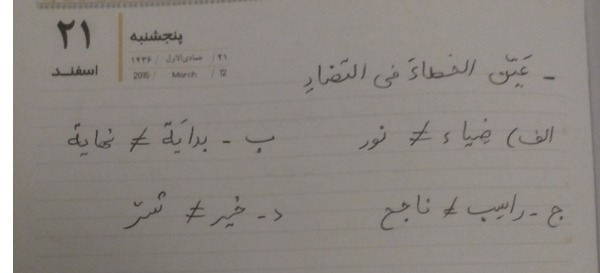 ۲۱
اسفند
پنجشنبه
۲۱ / جمادی‌الاول / ۱۴۳۶
12 / March / 2015
- عَيِّن الخطاءَ فی التضادِ
الف) ضِیاء ≠ نور ب - بدایَة ≠ نهایة
ج - راسِب ≠ ناجح د - خَیر ≠ شَرّ